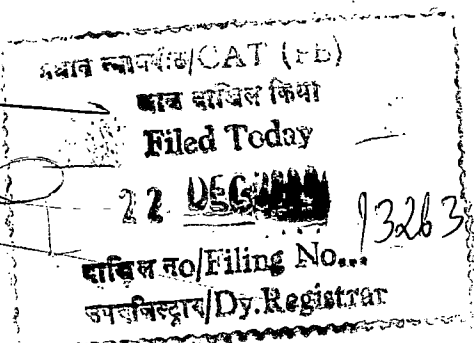 प्रधान न्यायपीठ/CAT (PB)
आज दाखिल किया
Filed Today
22 DEC
दाखिल न0/Filing No... 13263
उपरजिस्ट्रार/Dy.Registrar